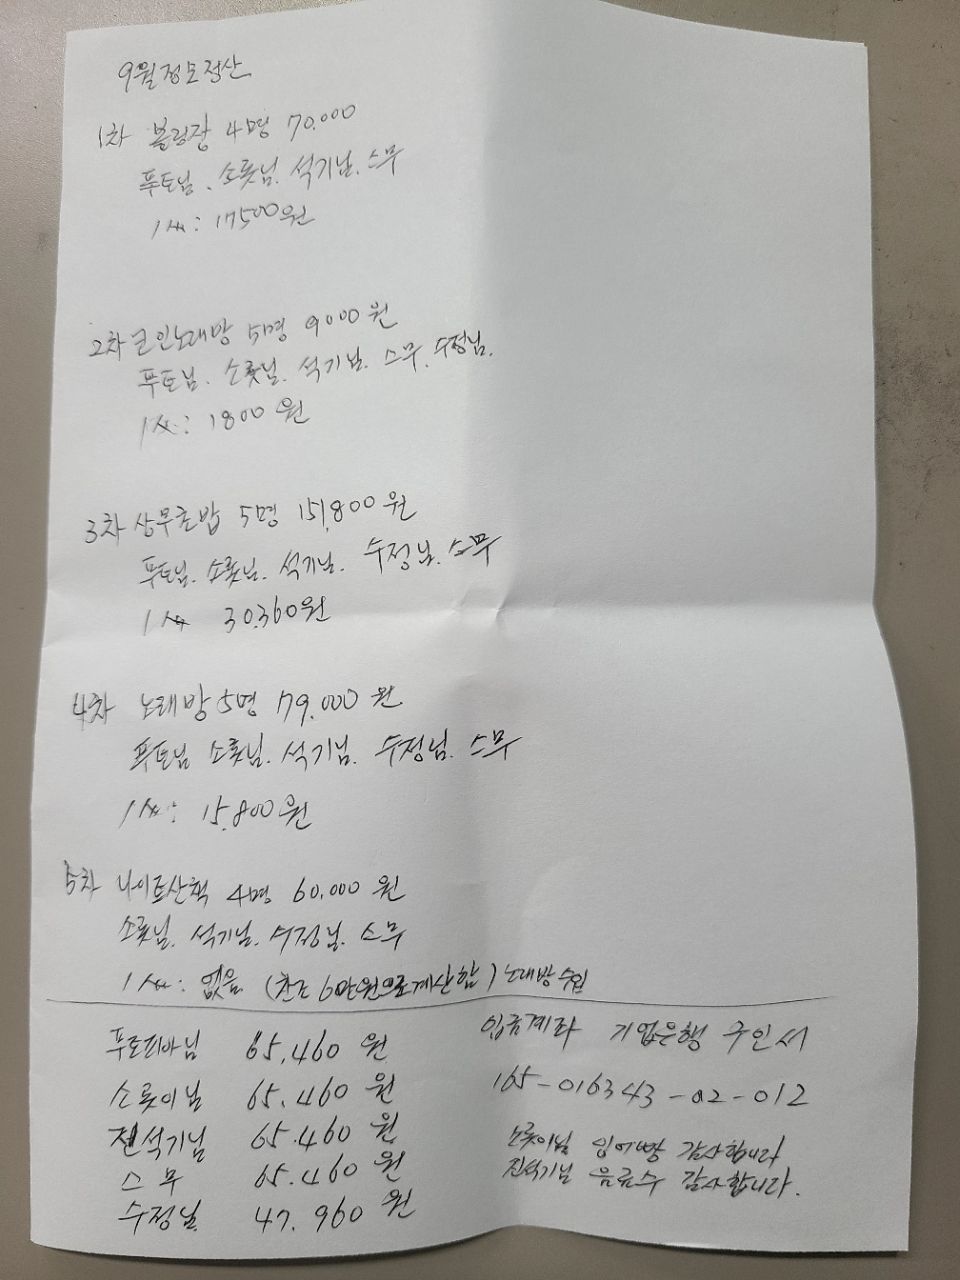 9월정모정산
1차 볼링장 4명 70.000
푸토님. 소롯님. 석기님. 스무
1人: 17500원
2차 코인노래방 5명 9000원
푸토님. 소롯님. 석기님. 스무. 수정님.
1人: 1800원
3차 상무초밥 5명 151,800원
푸토님. 소롯님. 석기님. 수정님. 스무
1人 30.360원
4차 노래방 5명 79.000원
푸토님 소롯님. 석기님. 수정님. 스무
1人: 15.800원
5차 나이트산책 4명 60.000원
소롯님. 석기님. 수정님. 스무
1人: 없음 (찬조 6만원으로계산함) 노래방수입
푸토피아님 65,460 원
소롯이님 65.460 원
전석기님 65.460 원
스무 65.460 원
수정님 47.960 원
입금계좌 기업은행 구인서
165-016343-02-012
소롯이님 잉어빵 감사합니다
전석기님 음료수 감사합니다.